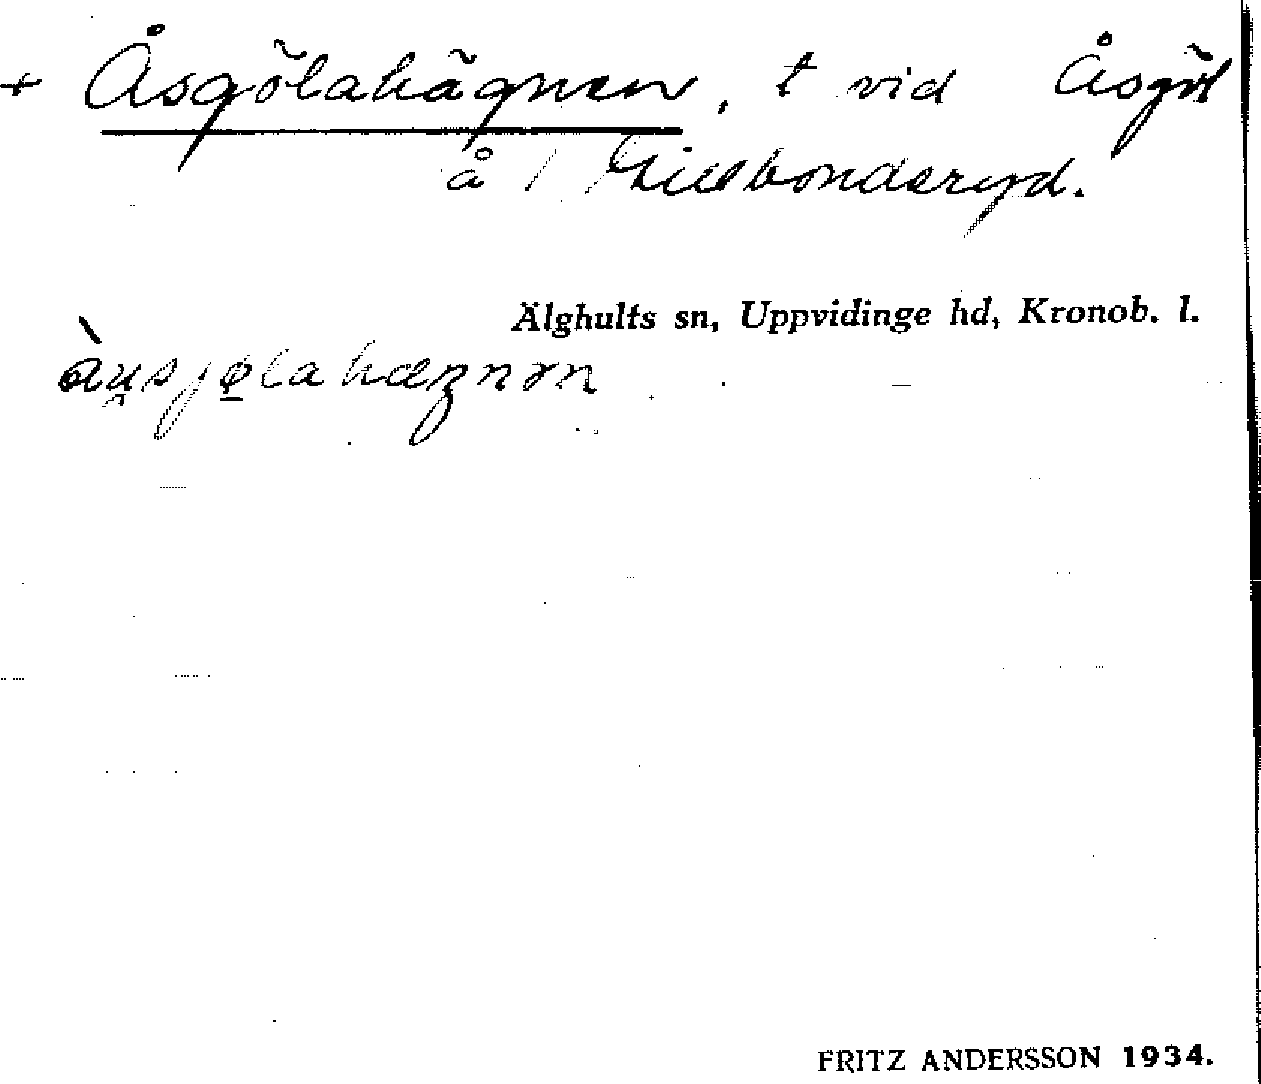 + Åsgölahägnen, t vid Åsgöl
å Lillbonderyd.
Älghults sn, Uppvidinge hd, Kronob. l.
FRITZ ANDERSSON 1934.